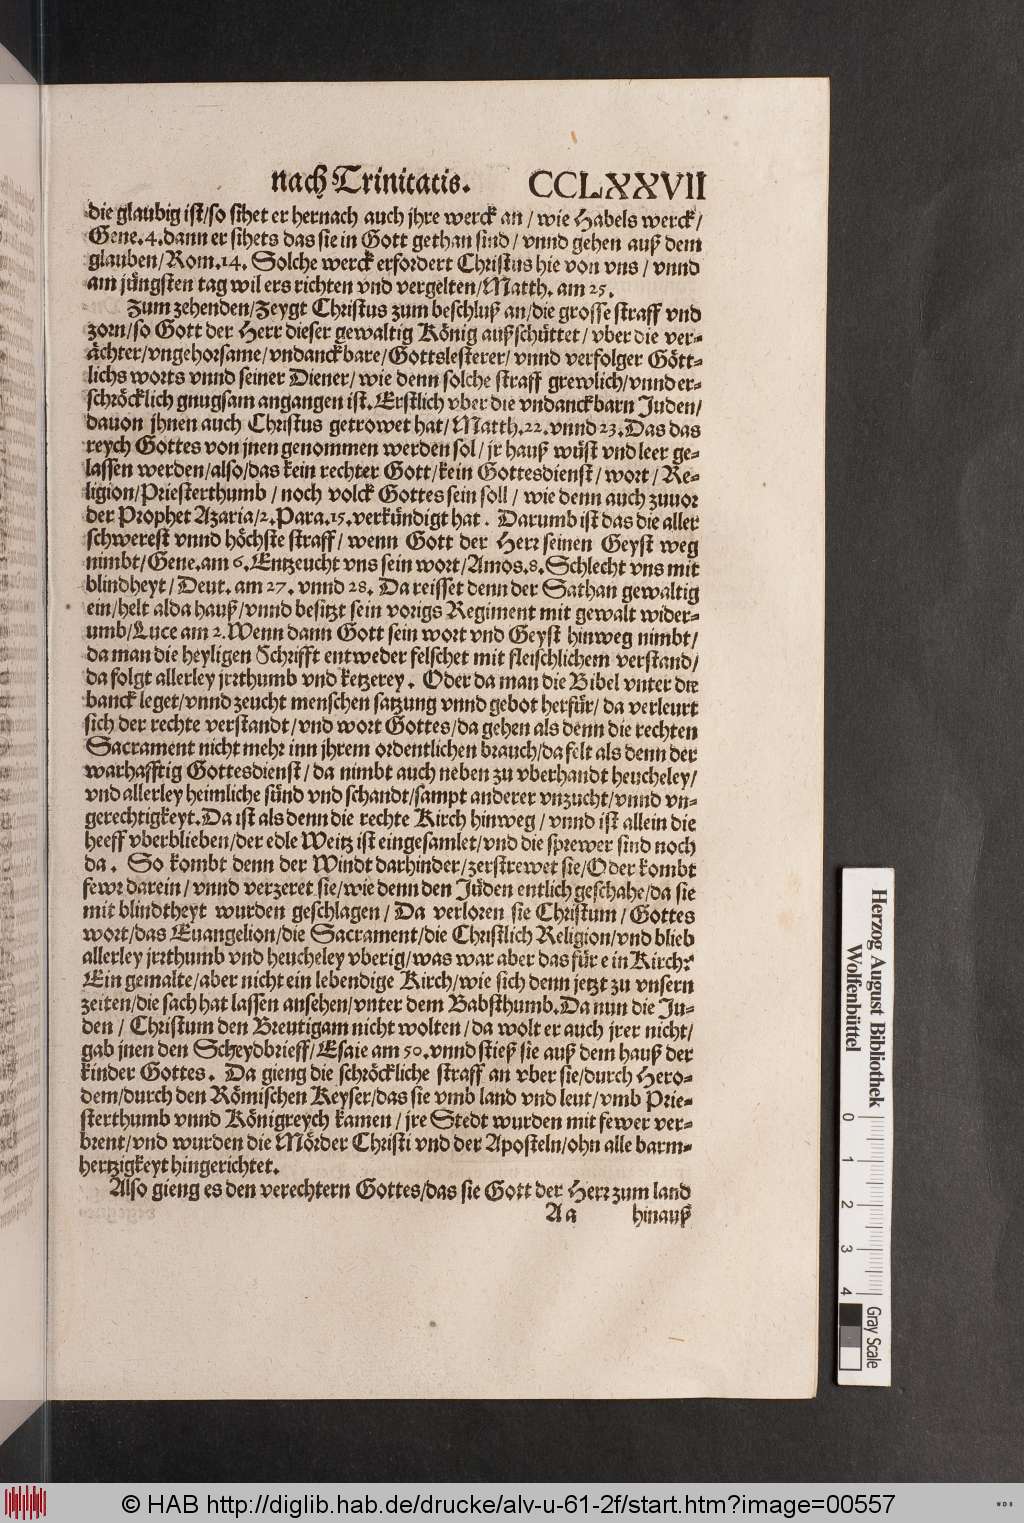 nach Trinitatis. CCLXXVII
die glaubig ist/so sihet er hernach auch jhre werck an/wie Habels werck/
Gene.4.dann er sihets das sie in Gott gethan sind/vnnd gehen auß dem
glauben/Rom.14. Solche werck erfordert Christus hie von vns/vnnd
am jüngsten tag wil ers richten vnd vergelten/Matth. am 25.
Zum zehenden/Zeygt Christus zum beschluß an/die grosse straff vnd
zorn/so Gott der Herr dieser gewaltig König außschüttet/vber die ver-
ächter/vngehorsame/vndanckbare/Gottslesterer/vnnd verfolger Gött-
lichs worts vnnd seiner Diener/wie denn solche straff grewlich/vnnd er-
schröcklich gnugsam angangen ist.Erstlich vber die vndanckbarn Juden/
dauon jhnen auch Christus getrowet hat/Matth.22.vnnd 23.Das das
reych Gottes von jnen genommen werden sol/jr hauß wüst vnd leer ge-
lassen werden/also/das kein rechter Gott/kein Gottesdienst/wort/Re-
ligion/Priesterthumb/noch volck Gottes sein soll/wie denn auch zuuor
der Prophet Azaria/2.Para.15.verkündigt hat. Darumb ist das die aller
schwerest vnnd höchste straff/wenn Gott der Herr seinen Geyst weg
nimbt/Gene.am 6.Entzeucht vns sein wort/Amos.8.Schlecht vns mit
blindheyt/Deut. am 27. vnnd 28. Da reisset denn der Sathan gewaltig
ein/helt alda hauß/vnnd besitzt sein vorigs Regiment mit gewalt wider-
umb/Luce am 2.Wenn dann Gott sein wort vnd Geyst hinweg nimbt/
da man die heyligen Schrifft entweder felschet mit fleischlichem verstand/
da folgt allerley jrrthumb vnd ketzerey. Oder da man die Bibel vnter die
banck leget/vnnd zeucht menschen satzung vnnd gebot herfür/da verleurt
sich der rechte verstandt/vnd wort Gottes/da gehen als denn die rechten
Sacrament nicht mehr inn jhrem ordentlichen brauch/da felt als denn der
warhafftig Gottesdienst/da nimbt auch neben zu vberhandt heucheley/
vnd allerley heimliche sünd vnd schandt/sampt anderer vnzucht/vnnd vn-
gerechtigkeyt.Da ist als denn die rechte Kirch hinweg/vnnd ist allein die
heeff vberblieben/der edle Weitz ist eingesamlet/vnd die sprewer sind noch
da. So kombt denn der Windt darhinder/zerstrewet sie/Oder kombt
fewr darein/vnnd verzeret sie/wie denn den Jüden entlich geschahe/da sie
mit blindtheyt wurden geschlagen/Da verloren sie Christum/Gottes
wort/das Euangelion/die Sacrament/die Christlich Religion/vnd blieb
allerley jrrthumb vnd heucheley vberig/was war aber das für ein Kirch?
Ein gemalte/aber nicht ein lebendige Kirch/wie sich denn jetzt zu vnsern
zeiten/die sach hat lassen ansehen/vnter dem Babsthumb.Da nun die Ju-
den/Christum den Breutigam nicht wolten/da wolt er auch jrer nicht/
gab jnen den Scheydbrieff/Esaie am 50.vnnd stieß sie auß dem hauß der
kinder Gottes. Da gieng die schröckliche straff an vber sie/durch Hero-
dem/durch den Römischen Keyser/das sie vmb land vnd leut/vmb Prie-
sterthumb vnnd Königreych kamen/jre Stedt wurden mit fewer ver-
brent/vnd wurden die Mörder Christi vnd der Aposteln/ohn alle barm-
hertzigkeyt hingerichtet.
Also gieng es den verechtern Gottes/das sie Gott der Herr zum land
Aa hinauß
Herzog August Bibliothek
Wolfenbüttel
0 1 2 3 4
Gray Scale
© HAB http://diglib.hab.de/drucke/alv-u-61-2f/start.htm?image=00557
WDB